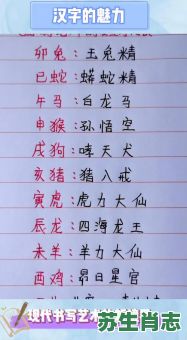 汉字的魅力
卯兔：玉兔精
巳蛇：蟒蛇精
午马：白龙马
申猴：孙悟空
戌狗：哮天犬
亥猪：猪八戒
寅虎：虎力大仙
辰龙：四海龙王
未羊：羊力大仙
酉鸡：昴日星官
现代书写艺术
苏生肖志